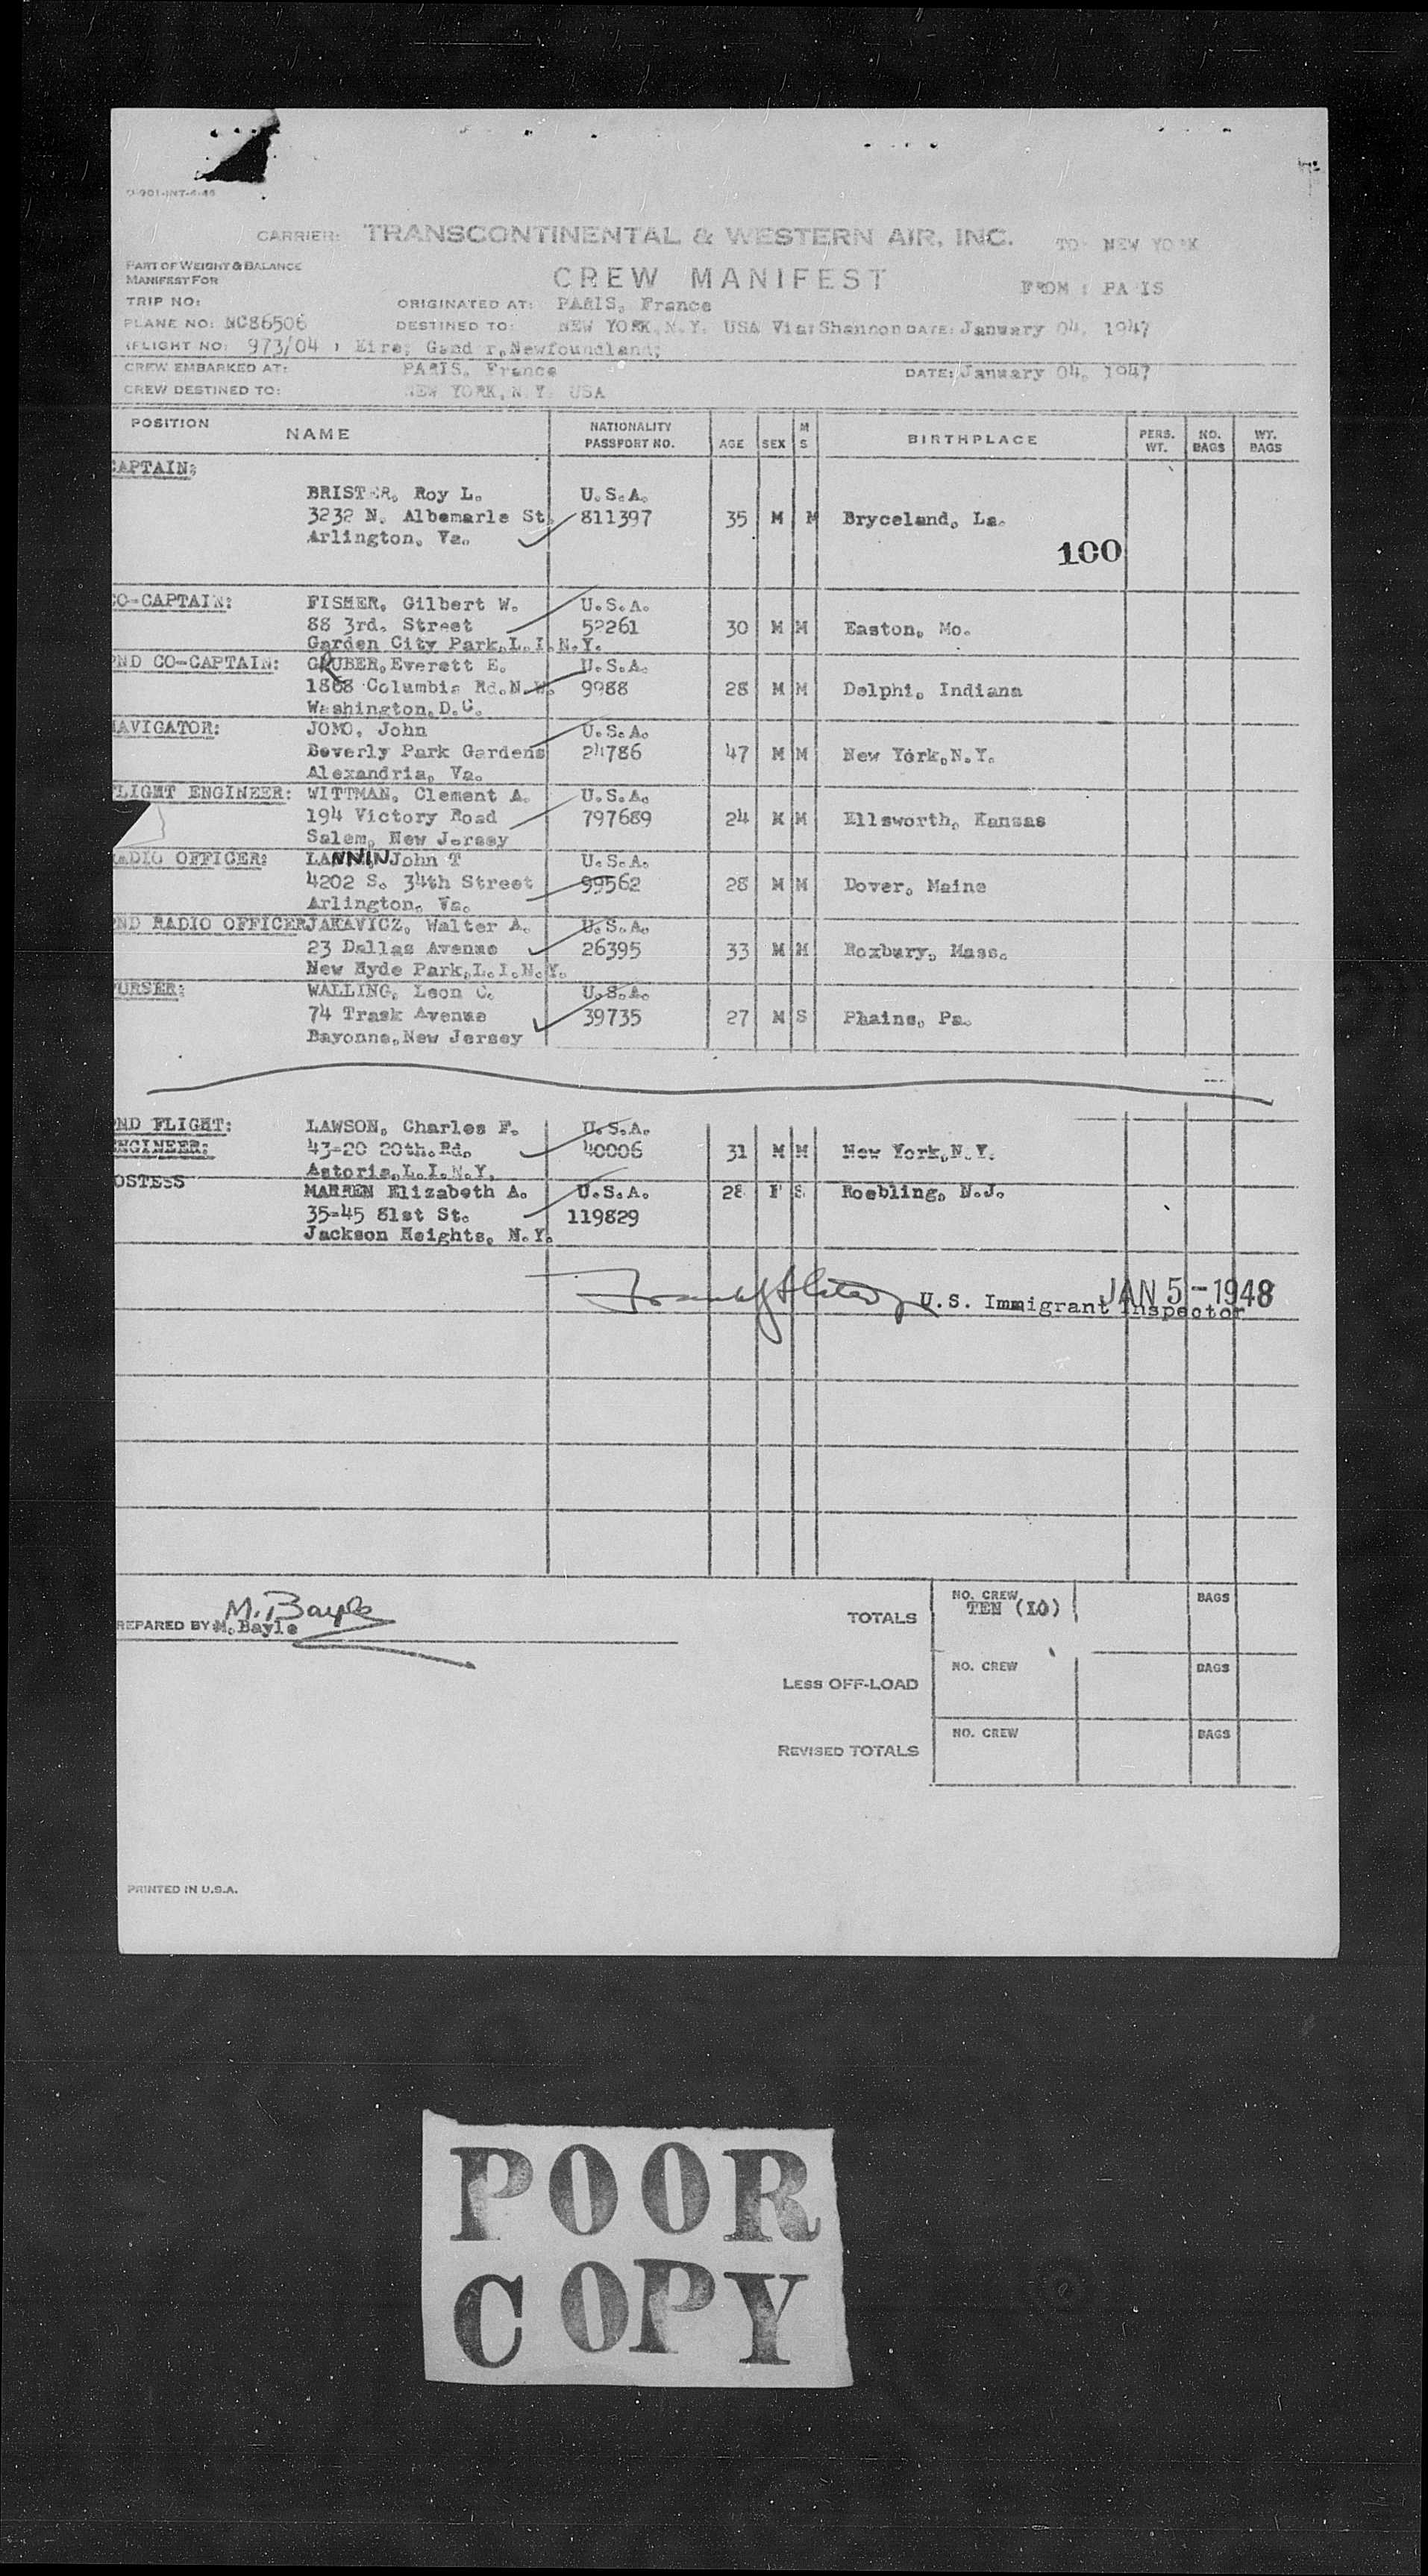 O-901-INT-4-46
CARRIER: TRANSCONTINENTAL & WESTERN AIR, INC. TO NEW YO K
PART OF WEIGHT & BALANCE
MANIFEST FOR
CREW MANIFEST
FROM : PA IS
TRIP NO:
ORIGINATED AT: PARIS, France
PLANE NO: NC86506 DESTINED TO: NEW YORK, N.Y. USA Via: Shannon DATE: January 04, 1947
(FLIGHT NO: 973/04 ) Eire; Gand r, Newfoundland;
CREW EMBARKED AT: PARIS, France DATE: January 04, 1947
CREW DESTINED TO: NEW YORK, N.Y. USA
POSITION NAME NATIONALITY PASSPORT NO. AGE SEX M S BIRTHPLACE PERS. WT. NO. BAGS WT. BAGS
CAPTAIN:
BRISTER, Roy L. U.S.A.
3232 N. Albemarle St. 811397 35 M M Bryceland, La.
Arlington, Va.
100
CO-CAPTAIN: FISHER, Gilbert W. U.S.A.
88 3rd. Street 52261 30 M M Easton, Mo.
Garden City Park, L.I.N.Y.
ND CO-CAPTAIN: GRUBER, Everett E. U.S.A.
1868 Columbia Rd. N.W. 9988 28 M M Delphi, Indiana
Washington, D.C.
NAVIGATOR: JOMO, John U.S.A.
Beverly Park Gardens 24786 47 M M New York, N.Y.
Alexandria, Va.
FLIGHT ENGINEER: WITTMAN, Clement A. U.S.A.
194 Victory Road 797689 24 M M Ellsworth, Kansas
Salem, New Jersey
RADIO OFFICER: LANNIN John T U.S.A.
4202 S. 34th Street 99562 28 M M Dover, Maine
Arlington, Va.
ND RADIO OFFICER JAKAVICZ, Walter A. U.S.A.
23 Dallas Avenue 26395 33 M M Roxbury, Mass.
New Hyde Park, L.I.N.Y.
PURSER: WALLING, Leon C. U.S.A.
74 Trask Avenue 39735 27 M S Phains, Pa.
Bayonne, New Jersey
ND FLIGHT: LAWSON, Charles F. U.S.A.
ENGINEER: 43-20 20th. Rd. 40006 31 M M New York, N.Y.
Astoria, L.I.N.Y.
OSTESS MARREN Elizabeth A. U.S.A. 28 F S Roebling, N.J.
35-45 81st St. 119829
Jackson Heights, N.Y.
JAN 5 - 1948
U.S. Immigrant Inspector
M. Bayle
REPARED BY M. Bayle
TOTALS NO. CREW TEN (10) BAGS
LESS OFF-LOAD NO. CREW BAGS
REVISED TOTALS NO. CREW BAGS
PRINTED IN U.S.A.
POOR
COPY